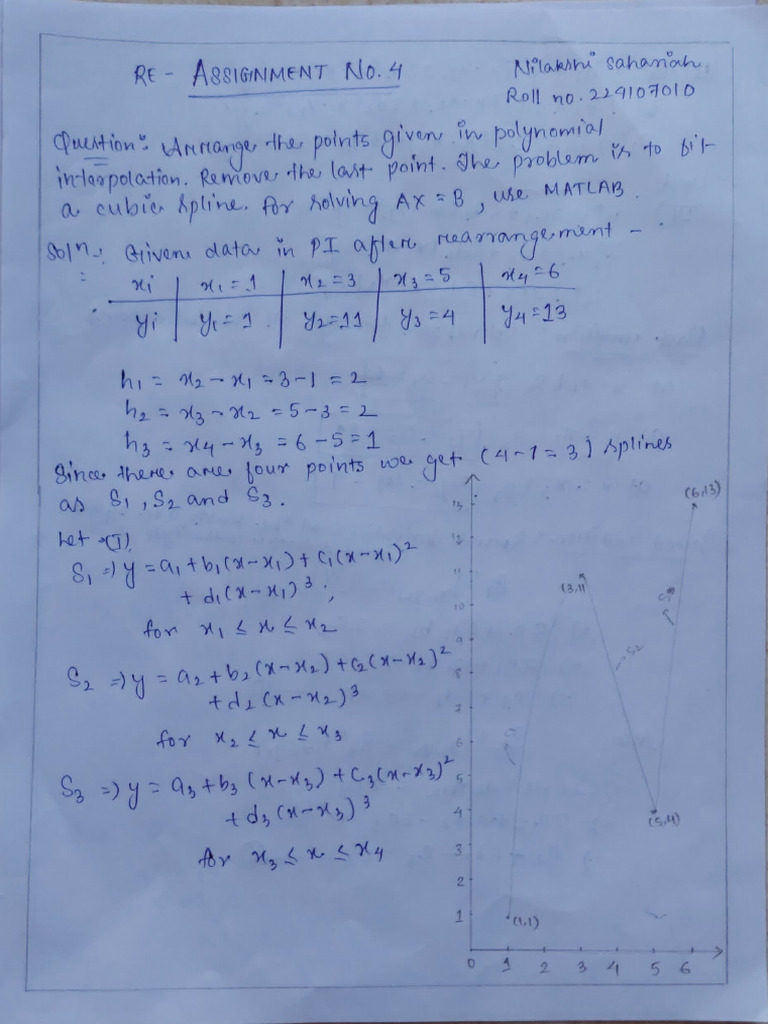 RE - ASSIGNMENT NO. 4
Nilakshi Sahariah
Roll no. 229107010
Question: Arrange the points given in polynomial
interpolation. Remove the last point. The problem is to fit
a cubic spline. For solving AX = B, use MATLAB.
Soln: Given data in PI after rearrangement -
xi | x1 = 1 | x2 = 3 | x3 = 5 | x4 = 6
yi | y1 = 1 | y2 = 11 | y3 = 4 | y4 = 13
h1 = x2 - x1 = 3 - 1 = 2
h2 = x3 - x2 = 5 - 3 = 2
h3 = x4 - x3 = 6 - 5 = 1
Since there are four points we get (4 - 1 = 3) splines
as S1, S2 and S3.
Let
S1 => y = a1 + b1(x - x1) + c1(x - x1)²
+ d1(x - x1)³ ;
for x1 ≤ x ≤ x2
S2 => y = a2 + b2(x - x2) + c2(x - x2)²
+ d2(x - x2)³
for x2 ≤ x ≤ x3
S3 => y = a3 + b3(x - x3) + c3(x - x3)²
+ d3(x - x3)³
for x3 ≤ x ≤ x4
(6,13)
13
12
11
(3,11)
10
9
S2
8
7
6
5
4
(5,4)
3
2
1
(1,1)
0 1 2 3 4 5 6